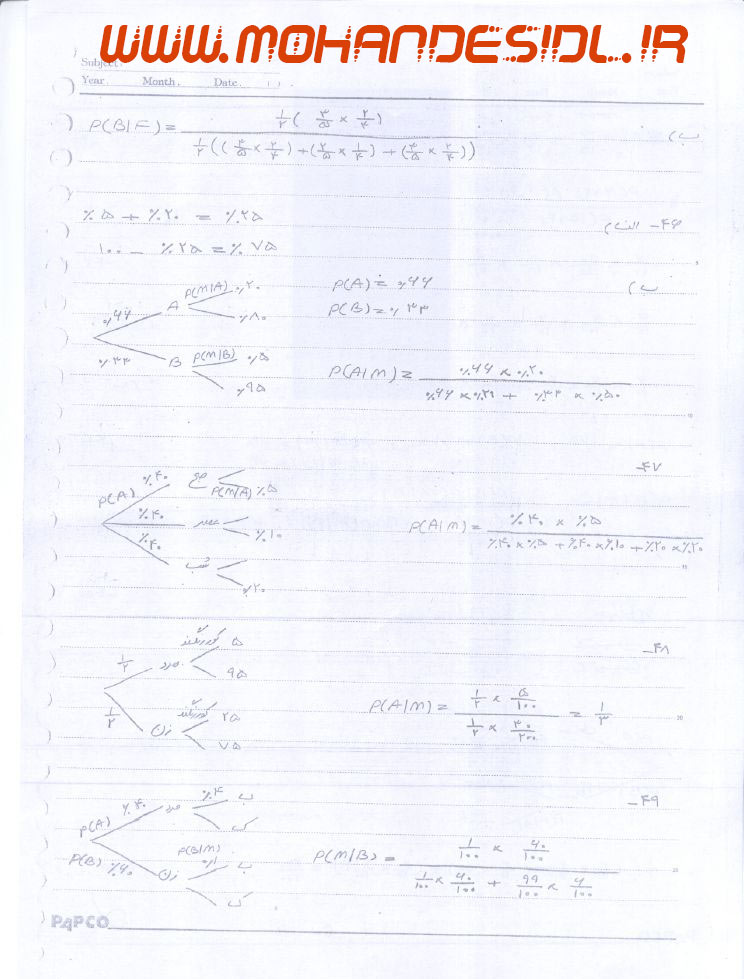 WWW.MOHANDESIDL.IR
Subject:
Year. Month. Date. ( )
ب) P(B|F) = ۱/۲ ( ۳/۵ × ۲/۴ ) / ۱/۲ (( ۳/۵ × ۲/۴ ) + ( ۲/۵ × ۱/۴ ) + ( ۳/۵ × ۲/۴ ))
۴۶- الف) ٪۵ + ٪۲۰ = ٪۲۵
۱۰۰ - ٪۲۵ = ٪۷۵
ب) P(A) = ٪۶۶
P(B) = ٪۳۳
٪۶۶ A P(M|A) ٪۲۰
٪۸۰
٪۳۳ B P(M|B) ٪۵
٪۹۵
P(A|M) = ٪۶۶ × ٪۲۰ / ٪۶۶ × ٪۲۰ + ٪۳۳ × ٪۵۰
۴۷-
P(A) ٪۴۰ صبح P(M|A) ٪۵
٪۴۰ عصر ٪۱۰
٪۴۰ شب ٪۲۰
P(A|M) = ٪۴۰ × ٪۵ / ٪۴۰ × ٪۵ + ٪۴۰ × ٪۱۰ + ٪۲۰ × ٪۲۰
۴۸-
۱/۲ مرد کوررنگند ۵
۹۵
۱/۲ زن کوررنگند ۲۵
۷۵
P(A|M) = ۱/۲ × ۵/۱۰۰ / ۱/۲ × ۳۰/۲۰۰ = ۱/۳
۴۹-
P(A) ٪۴۰ مرد ٪۴ ب
ک
P(B) ٪۶۰ زن P(B|M) ٪۱ ب
ک
P(M|B) = ۱/۱۰۰ × ۶۰/۱۰۰ / ۱/۱۰۰ × ۶۰/۱۰۰ + ۹۹/۱۰۰ × ۴/۱۰۰
PAPCO